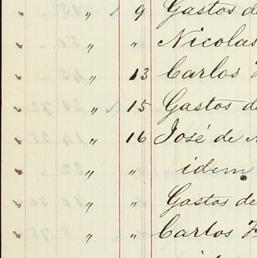 " 9 Gastos d
" " Nicolas
" 13 Carlos
" 15 Gastos d
" 16 José de
" " idem
" Gastos de
" " Carlos F